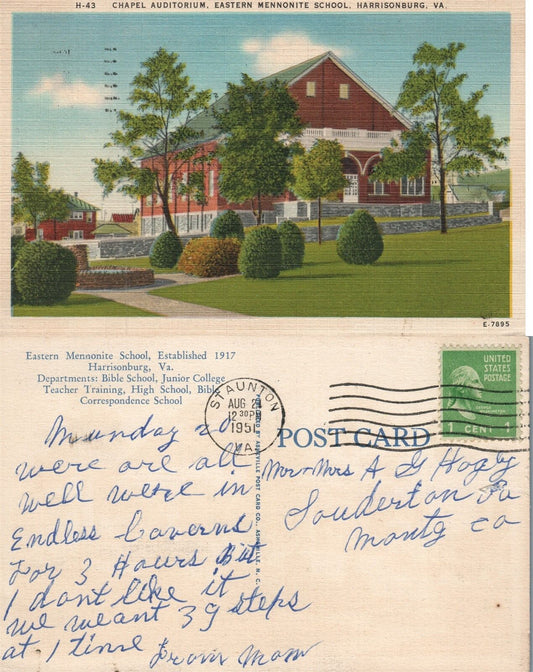 H-43 CHAPEL AUDITORIUM, EASTERN MENNONITE SCHOOL, HARRISONBURG, VA.
E-7895
Eastern Mennonite School, Established 1917
Harrisonburg, Va.
Departments: Bible School, Junior College
Teacher Training, High School, Bible
Correspondence School
STAUNTON
AUG 21
12 30 PM
1951
VA.
UNITED
STATES
POSTAGE
1 CENT 1
POST CARD
ASHEVILLE POST CARD CO., ASHEVILLE, N. C.
Munday 20
were are all
well were in
Endless Caverns
For 3 Hours But
I dont like it
we weant 39 steps
at 1 time From Mom
Mr + Mrs A G
Souderton Pa
Montg co